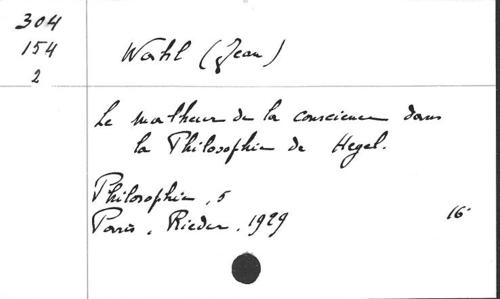 304
154
2
Wahl (Jean)
Le malheur de la conscience dans
la Philosophie de Hegel.
Philosophie, 5
Paris, Rieder, 1929
16°